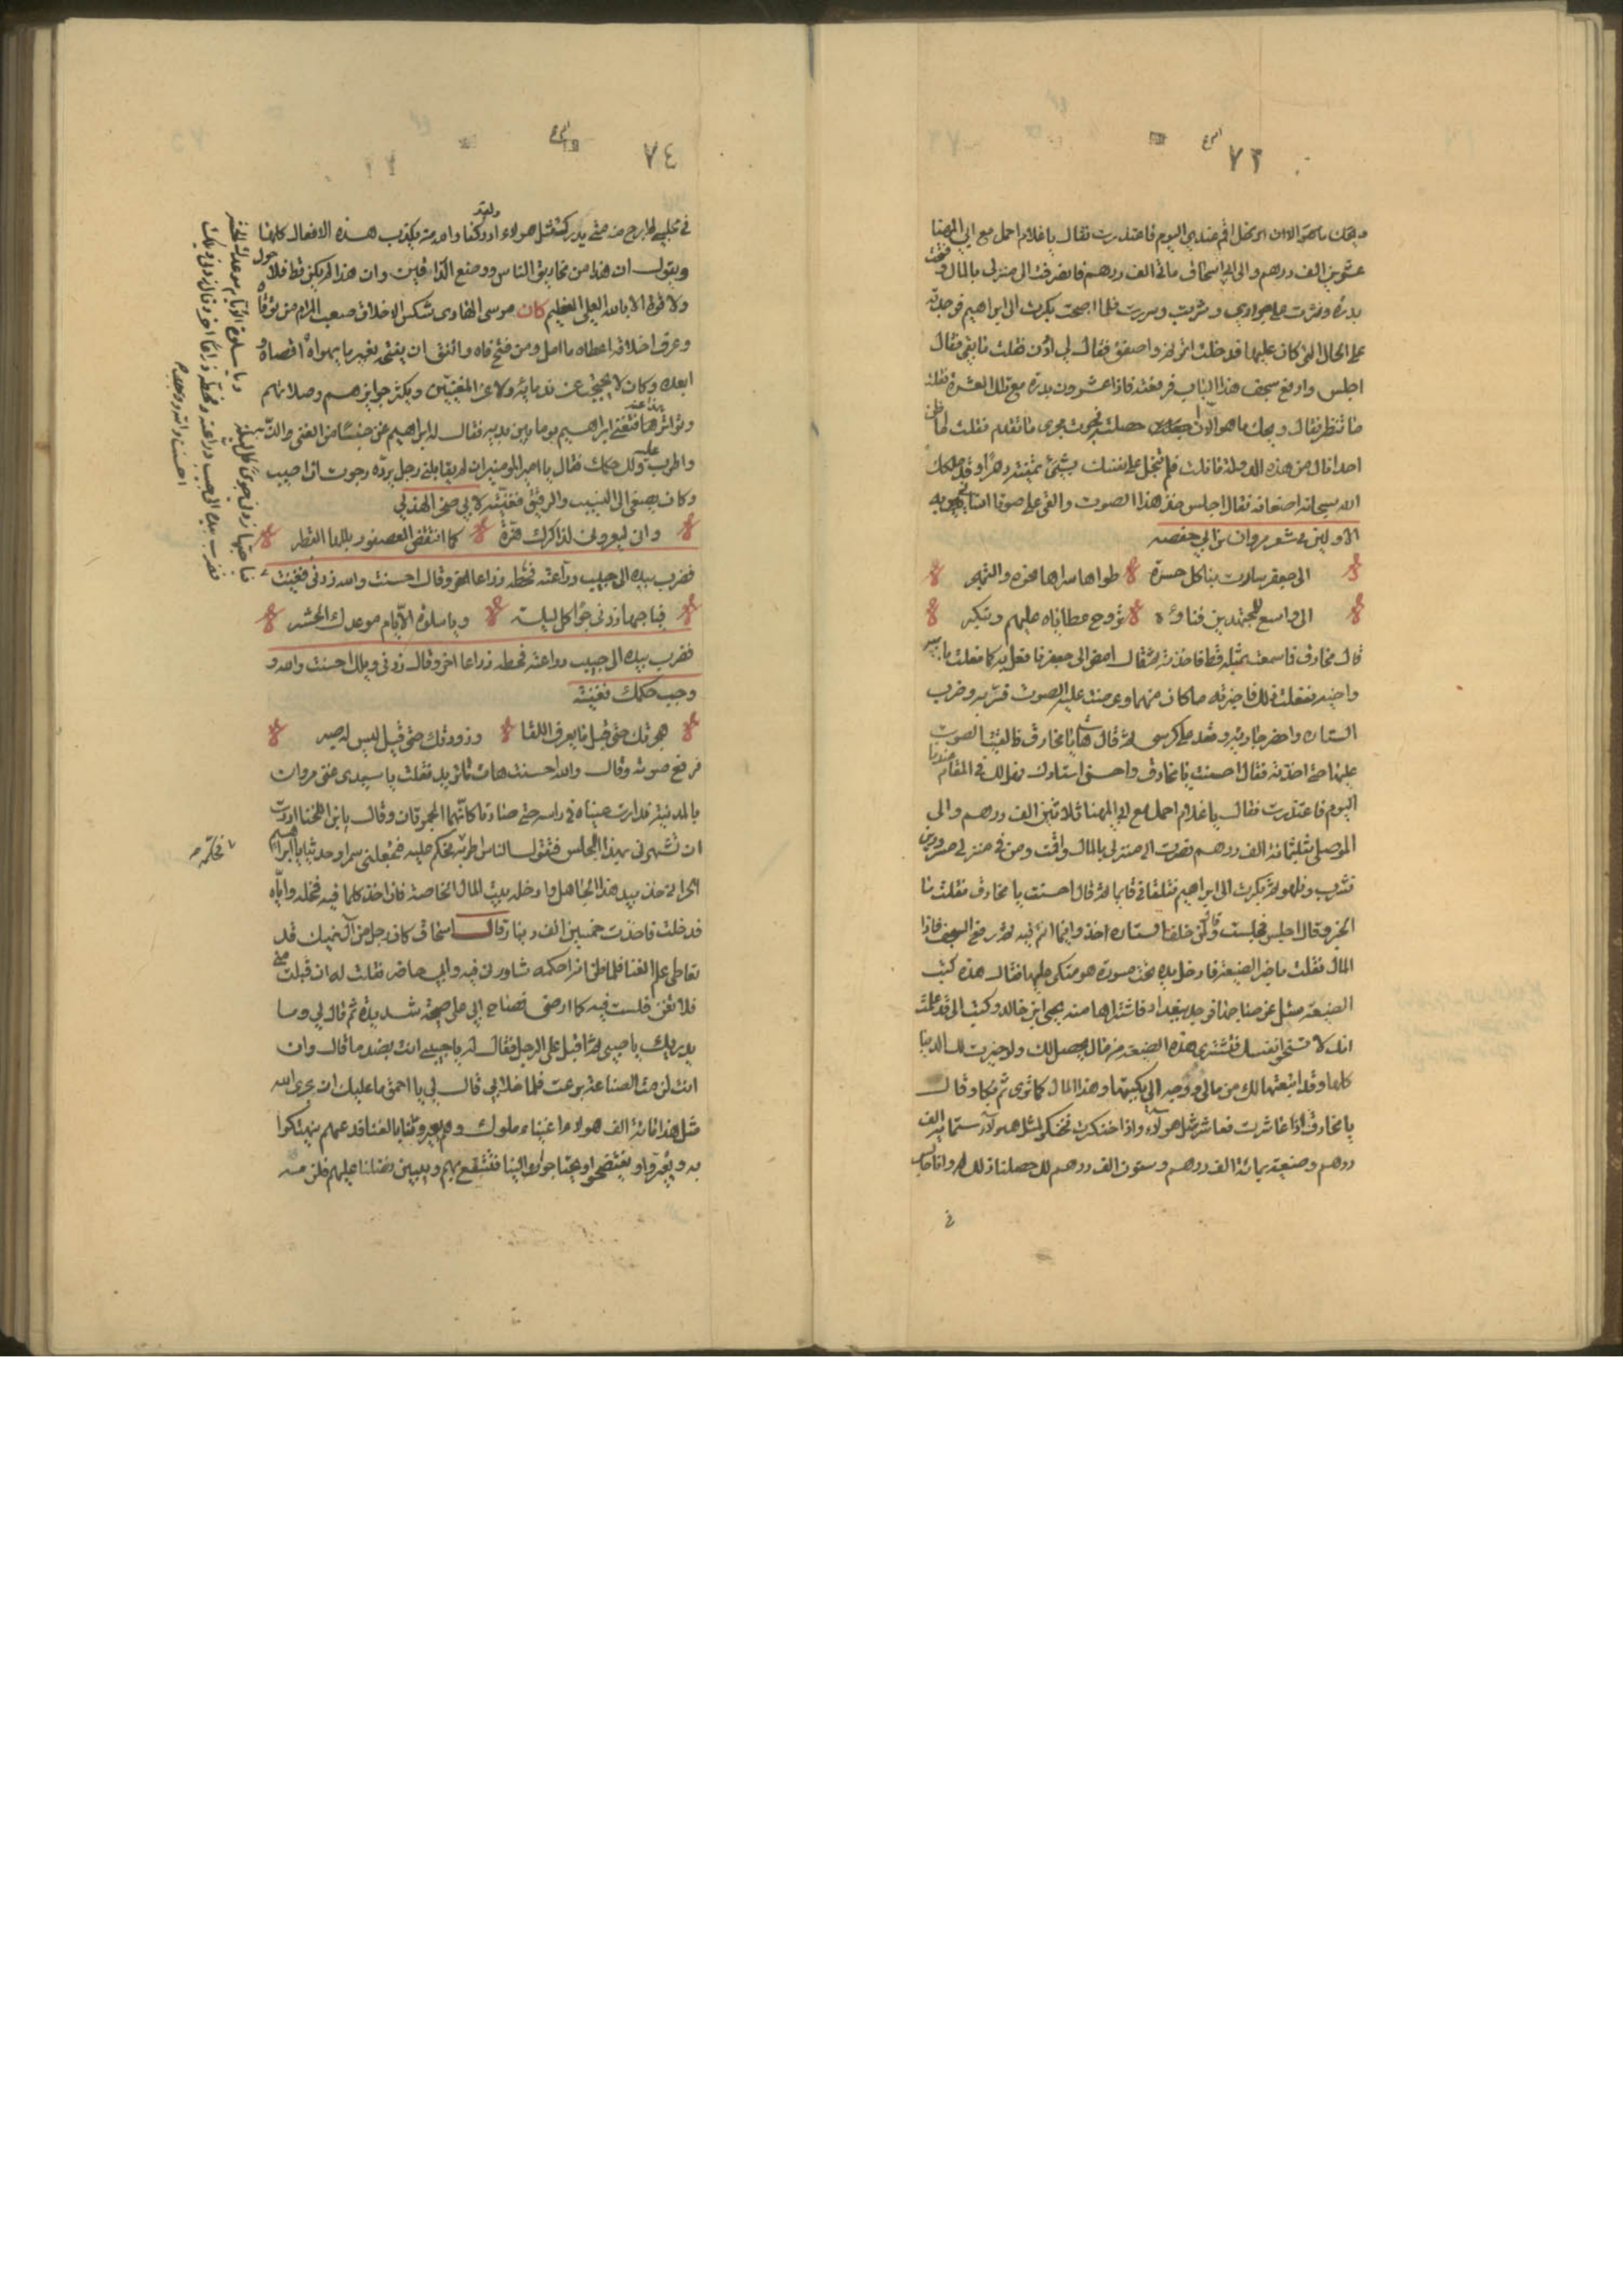 ٧٣
عشرين الف درهم والى ابي اسحاق مائة الف درهم فانصرفت الى منزلي بالمال
بدرة ونثرت على جواري وشربت وسررت فلما اصبحت بكرت الى ابراهيم فوجدته
على الحال التي كان عليها فدخلت اترنم واصفق فقال لي ادن فقلت ما بقي فقال
اجلس وارفع سجف هذا الباب فرفعته فاذا عشرون بدرة مع تلك العشرة فقلت
ما تنتظر فقال ويحك ما هو الا ان حصلت جرت مجرى ما تقدم فقلت
احدا نال من هذه الدولة ما نلت فلم تبخل على نفسك بشيء تمنيته دهرا وقد ملكك
الله سبحانه اضعافه فقال اجلس فخذ هذا الصوت والقى علي صوتا انساني به
الاولين في شعر مروان بن ابي حفصه
الى جعفر سارت بنا كل حرة طواها سراها نحوه والتهجر
الى واسع للمجتدين فناؤه تروح عطاياه عليهم وتبكر
قال مخارق ما سمعت بمثله قط فاخذته ثم قال امض الى جعفر فافعل به كما فعلت بابيه
واخيه ففعلت ذلك فاخبرته ما كان منهما وعرضت عليه الصوت فسر به وضرب
الستاره واحضر جاريته وقعد على كرسي ثم قال هات يا مخارق فالقيت الصوت
عليها حتى اخذته فقال احسنت يا مخارق واحسن استاذك فهل لك في المقام عندنا
اليوم فاعتذرت فقال يا غلام احمل مع ابي المهنا ثلاثين الف درهم والى
الموصلي ثلثمائة الف درهم فصرت الى منزلي بالمال واقمت ومن في منزلي مسرورين
نشرب ونلهو ثم بكرت الى ابراهيم فتلقاني قائما ثم قال احسنت يا مخارق فقلت ما
الخبر قال اجلس فجلست وقال لمن خلف الستاره خذوا فيما انتم فيه ثم رفع السجف فاذا
المال فقلت ما خبر الضيعة فادخل يده تحت مسورة هو متكي عليها فقال هذه كتب
الضيعة سئل عن صاحبها فوجد ببغداد فاشتراها منه يحيى ابن خالد وكتب الي قد علمت
انك لا تسخو نفسك فتشتري هذه الضيعة من مال يحصل لك ولو حيزت لك الدنيا
كلها وقد ابتعتها لك من مالي ووجه الي بكتبها وهذا المال كما ترى ثم بكا وقال
يا مخارق اذا عاشرت فعاشر مثل هولاء واذا خنكرت فخنكر لمثل هولاء ستمائة الف
درهم وضيعة بمائة الف درهم وستون الف درهم لك حصلنا ذلك وانا جالس
في
٧٤
في مجلسي لم ابرح منه متى يدرك مثل هولاء
ويقول ان هذا من مخاريق الناس ووضع الكذابين وان هذا لم يكن قط فلا حول
ولا قوة الا بالله العلي العظيم كان موسى الهادى شكس الاخلاق صعب المرام من توقاه
وعرف اخلاقه اعطاه ما امل ومن فتح فاه واتفق ان يفتحه بغير ما يهواه اقصاه و
ابعده وكان لا يحتجب عن ندمائه ولا عن المغنيين ويكثر جوايزهم وصلاتهم
فتغنى ابراهيم يوما بين يديه فقال له ابراهيم غن جنسا من الغنى والتذ به
واطرب عليه ولك حكمك فقال يا امير المومنين ان لم يقابلني زحل ببرده رجوت ان اصيب
وكان يصغي الى النسيب والرقيق فغنيته لابي صخر الهذلي
وانى لتعرونى لذكراك فترة كما انتفض العصفور بلله القطر
فضرب بيده الى جيب دراعته فحطه ذراعا اخر وقال احسنت والله زدنى فغنيت
فيا حبها زدنى جوا كل ليلة ويا سلوة الايام موعدك الحشر
فضرب بيده الى جيب دراعته فحطه ذراعا اخر وقال زدنى ويلك احسنت والله و
وجب حكمك فغنيته
هجرتك حتى قيل ما يعرف القلا وزورتك حتى قيل ليس له صبر
فرفع صوته وقال والله احسنت هات ما تريد فقلت يا سيدى عين مروان
بالمدينة فدارت عيناه في راسه حتى صارتا كانهما الجمرتان وقال يا ابن اللخنا اردت
ان تشهرنى بهذا المجلس فتقول الناس اطربه فحكم عليه
الحراني خذ بيد هذا الجاهل وادخله بيت المال الخاصة فان اخذ كلما فيه فخله واياه
فدخلت فاخذت خمسين الف دينار قال اسحاق كان رجل من آل نهيك قد
تعاطى علم الغنا فلما ظن انه احكمه شاورنى فيه وابي حاضر فقلت له ان قبلت مني
فلا تغن فلست فيه كما ارضى فصاح ابي علي صيحة شديدة ثم قال لي وما
يدريك يا صبي ثم اقبل على الرجل فقال له يا حبيبي انت بضد ما قال وان
انت لزمت الصناعة برعت فلما خلا بي قال لي يا احمق ما عليك ان يخزى الله
مثل هذا مائة الف هولاء اغنياء ملوك وهم يعيرونا بالغنا فدعهم يتهتكوا
به ويعيروا ويفتضحوا ويحتاجوا الينا فننتفع بهم ويبين فضلنا عليهم
ويا سلوة الايام موعدك الحشر
احسنت والله